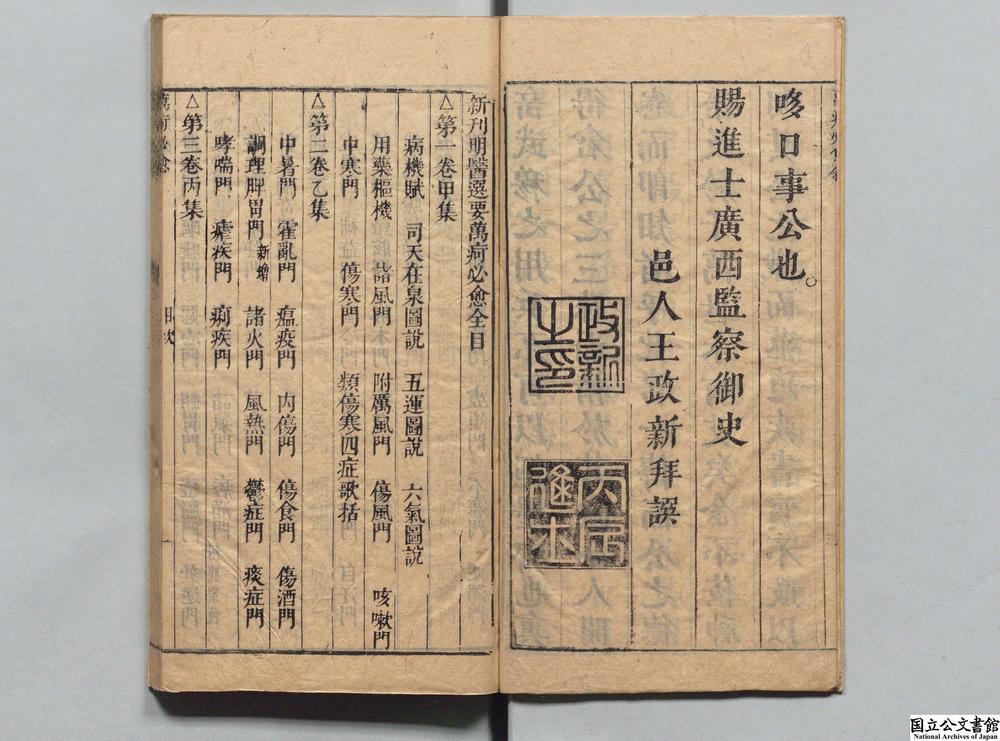 哆口事公也。
賜進士廣西監察御史
邑人王政新拜譔
政新之印
丙辰進士
新刊明醫選要萬疴必愈全目
△第一卷甲集
病機賦 司天在泉圖說 五運圖說 六氣圖說
用藥樞機 諸風門 附厲風門 傷風門 咳嗽門
中寒門 傷寒門 類傷寒四症歌括
△第二卷乙集
中暑門 霍亂門 瘟疫門 內傷門 傷食門 傷酒門
調理脾胃門新增 諸火門 風熱門 鬱症門 痰症門
哮喘門 瘧疾門 痢疾門
△第三卷丙集
萬疴必愈 目次 一
国立公文書館
National Archives of Japan